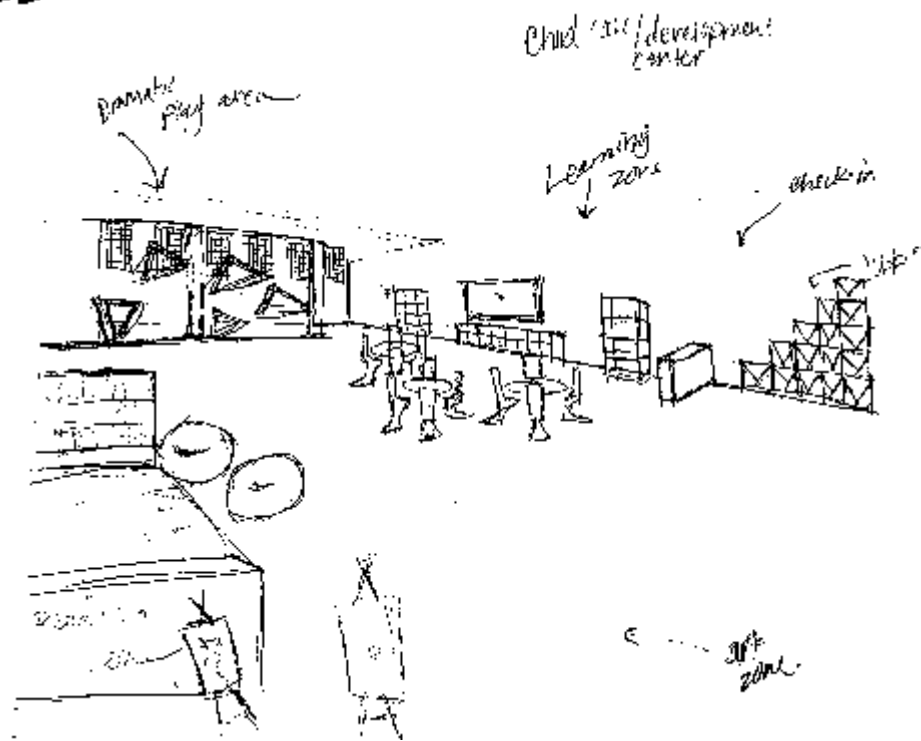 Child care/development
center
Dramatic
Play area
Learning
zone
check-in
art
zone